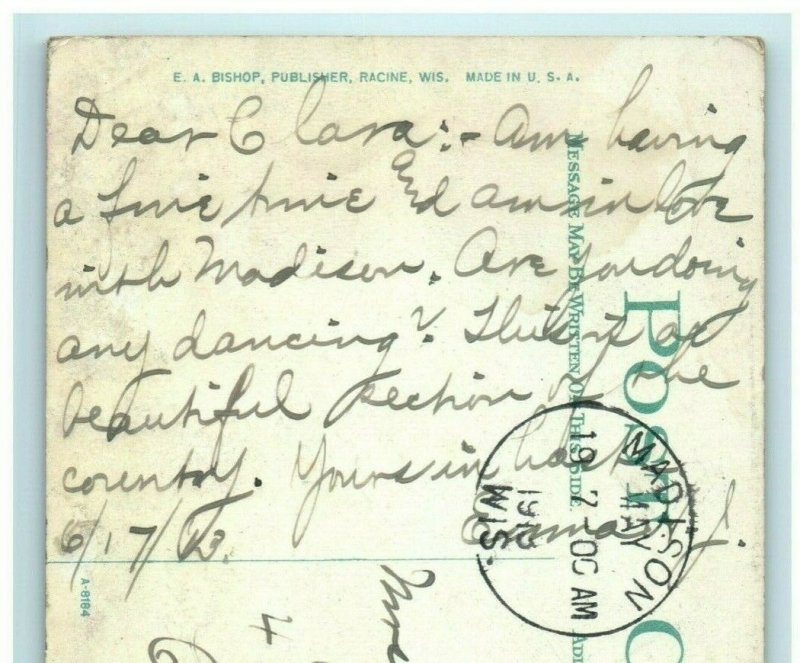 E. A. BISHOP, PUBLISHER, RACINE, WIS. MADE IN U. S. A.
Dear Clara:- Am having
a fine time and am in love
with Madison. Are you doing
any dancing? This is a
beautiful section of the
country. Yours in haste
6/17/13. Emma J.
MESSAGE MAY BE WRITTEN ON THIS SIDE.
POST C
MADISON
MAY
19
7-00 AM
WIS.
A-8184
4